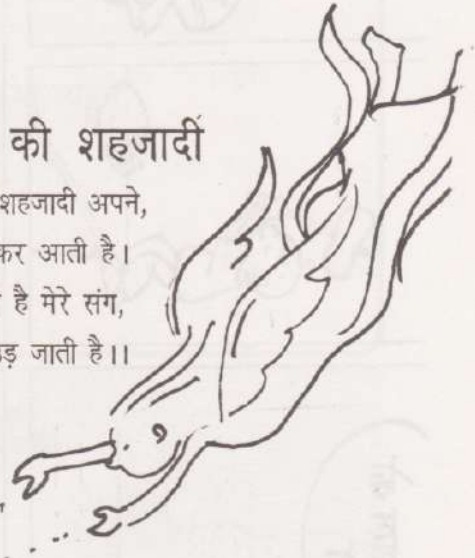 की शहजादी
शहजादी अपने,
कर आती है।
है मेरे संग,
जाती है।।